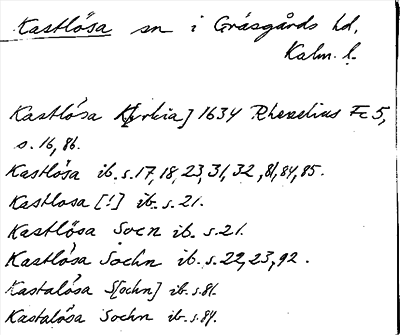 Kastlösa sn i Gräsgårds hd,
Kalm. l.
Kastlösa Kyrkia] 1634 Rhezelius Fc 5,
s. 16, 86.
Kastlösa ib. s. 17, 18, 23, 31, 32, 81, 84, 85.
Kastlosa [!] ib. s. 21.
Kastlösa Socn ib. s. 21.
Kastlösa Sochn ib. s. 22, 23, 92.
Kastalösa S[ochn] ib. s. 81.
Kastalösa Sochn ib. s. 84.